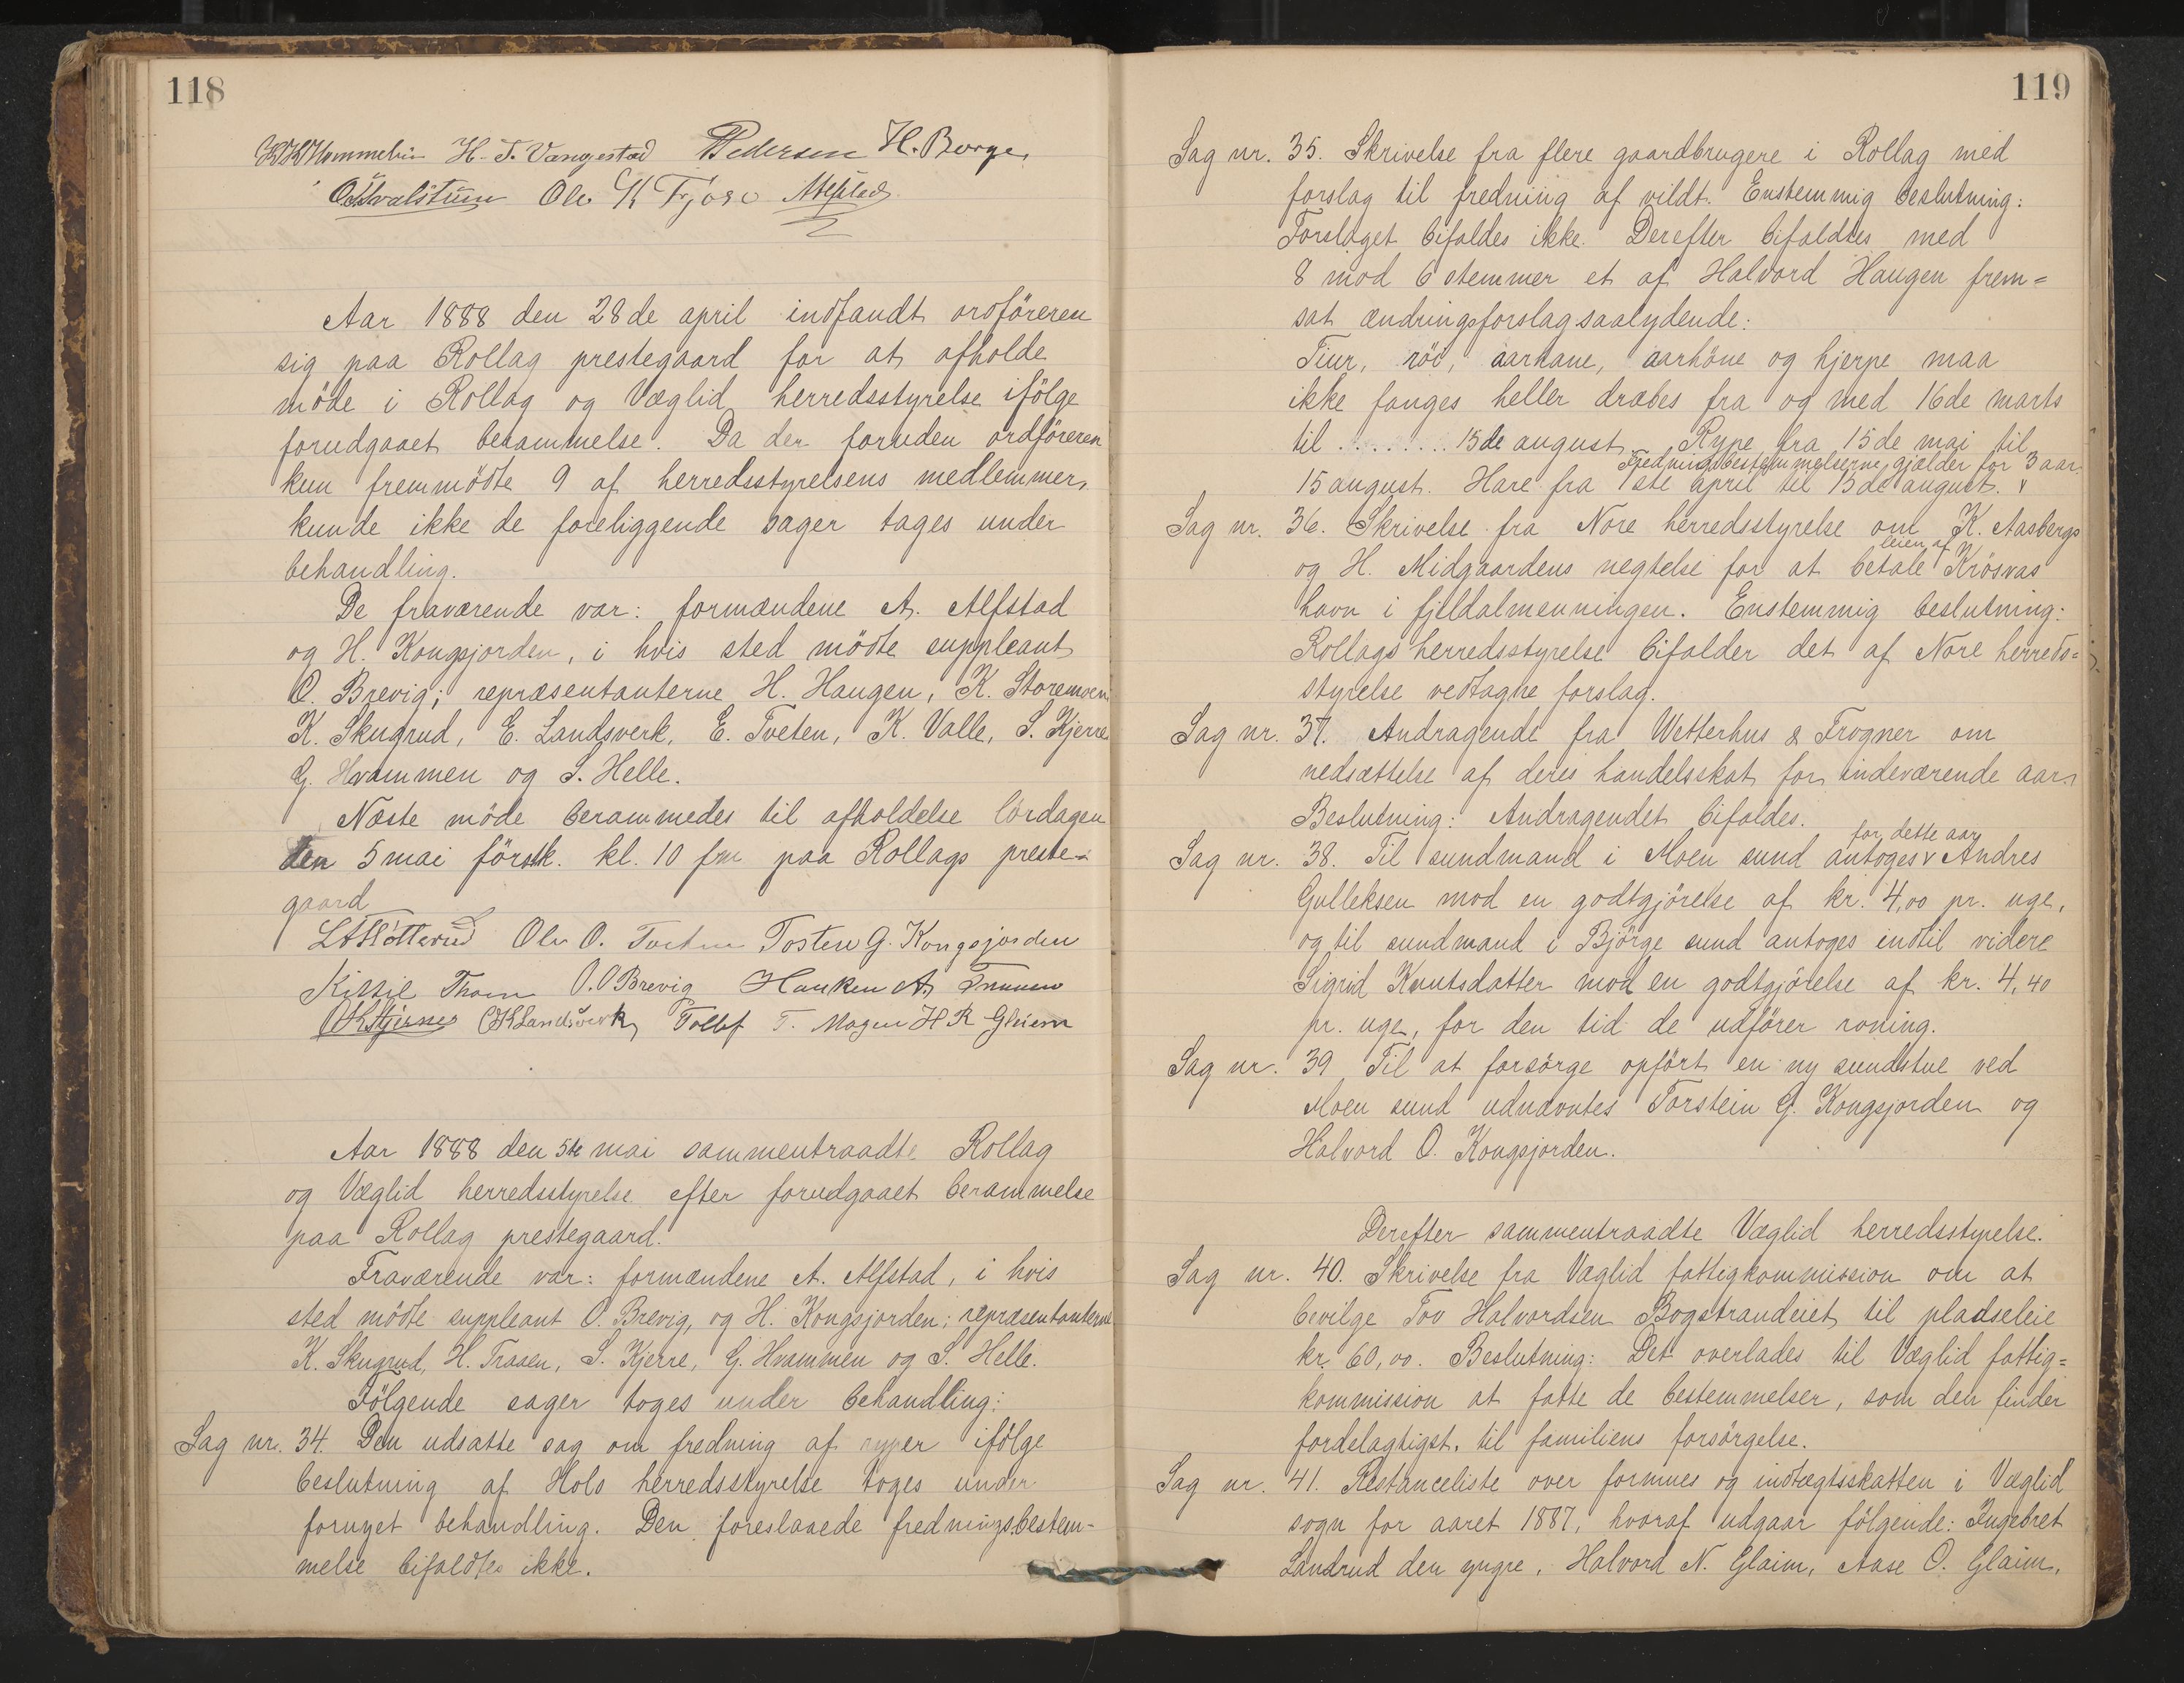 118
H. T. Vangestad Pedersen H. Borge,
Ole K Fjöse Alfstad
Aar 1888 den 28de april indfandt ordföreren
sig paa Rollag prestegaard for at afholde
möde i Rollag og Væglid herredsstyrelse ifölge
forudgaaet berammelse. Da der foruden ordföreren
kun fremmödte 9 af herredsstyrelsens medlemmer,
kunde ikke de foreliggende sager tages under
behandling.
De fraværende var: formændene A. Alfstad
og H. Kongsjorden, i hvis sted mödte suppleant
O. Brevig; repræsentanterne H. Haugen, K. Storemoen
K. Skugrud, E. Landsverk, E. Tveten, K. Valle, S. Kjerre
G. Hvammen og S. Helle.
Næste möde berammedes til afholdelse lördagen
den 5 mai förstk. kl. 10 fm paa Rollags preste-
gaard
Ole O. Tveten Tosten G. Kongsjorden
Kittil Thoen O. O Brevig
Landsverk Tollef T. Mogen H K Glaim
Aar 1888 den 5te mai sammentraadte Rollag
og Væglid herredsstyrelse efter forudgaaet berammelse
paa Rollag prestegaard.
Fraværende var: formændene A. Alfstad, i hvis
sted mödte suppleant O. Brevig, og H. Kongsjorden; repræsentanterne
K. Skugrud, H. Traaen, S. Kjerre, G. Hvammen og S. Helle.
Fölgende sager toges under behandling:
Sag nr. 34. Den udsatte sag om fredning af ryper ifölge
beslutning af Hols herredsstyrelse toges under
fornyet behandling. Den foreslaaede fredningsbestem-
melse bifaldtes ikke.
119
Sag nr. 35. Skrivelse fra flere gaardbrugere i Rollag med
forslag til fredning af vildt. Enstemmig beslutning:
Forslaget bifaldes ikke. Derefter bifaldtes med
8 mod 6 stemmer et af Halvord Haugen frem=
sat ændringsforslag saalydende:
Tiur, röi, aarhane, aarhöne og hjerpe maa
ikke fanges heller dræbes fra og med 16de marts
til ......... 15de august. Rype fra 15de mai til
Fredningsbestemmelserne gjælder for 3 aar.
15 august. Hare fra 1ste april til 15de august. v
Sag nr. 36. Skrivelse fra Nore herredsstyrelse om K. Aasbergs
leien af
og H. Midgaardens negtelse for at betale Krösvas
havn i fjeldalmenningen. Enstemmig beslutning:
Rollags herredsstyrelse bifalder det af Nore herreds=
styrelse vedtagne forslag.
Sag nr. 37. Andragende fra Wetterhus & Frogner om
nedsættelse af deres handelsskat for indeværende aar.
Beslutning: Andragendet bifaldes.
for dette aar
Sag nr. 38. Til sundmand i Moen sund antoges v Andres
Gulleksen mod en godtgjörelse af kr. 4,00 pr. uge,
og til sundmand i Björge sund antoges indtil videre
Sigrid Knutsdatter mod en godtgjörelse af kr. 4,40
pr. uge, for den tid de udförer roning.
Sag nr. 39 Til at forsörge opfört en ny sundstue ved
Moen sund udnævntes Torstein G. Kongsjorden og
Halvord O. Kongsjorden.
Derefter sammentraadte Væglid herredsstyrelse.
Sag nr. 40. Skrivelse fra Væglid fattigkommission om at
bevilge Tov Halvordsen Bogstrandeiet til pladseleie
kr. 60,00. Beslutning: Det overlades til Væglid fattig=
kommission at fatte de bestemmelser, som den finder
fordelagtigst, til familiens forsörgelse.
Sag nr. 41. Restanceliste over formues og indtægtsskatten i Væglid
sogn for aaret 1887, hvoraf udgaar fölgende: Ingebret
Landrud den yngre, Halvord N. Glaim, Aase O. Glaim,